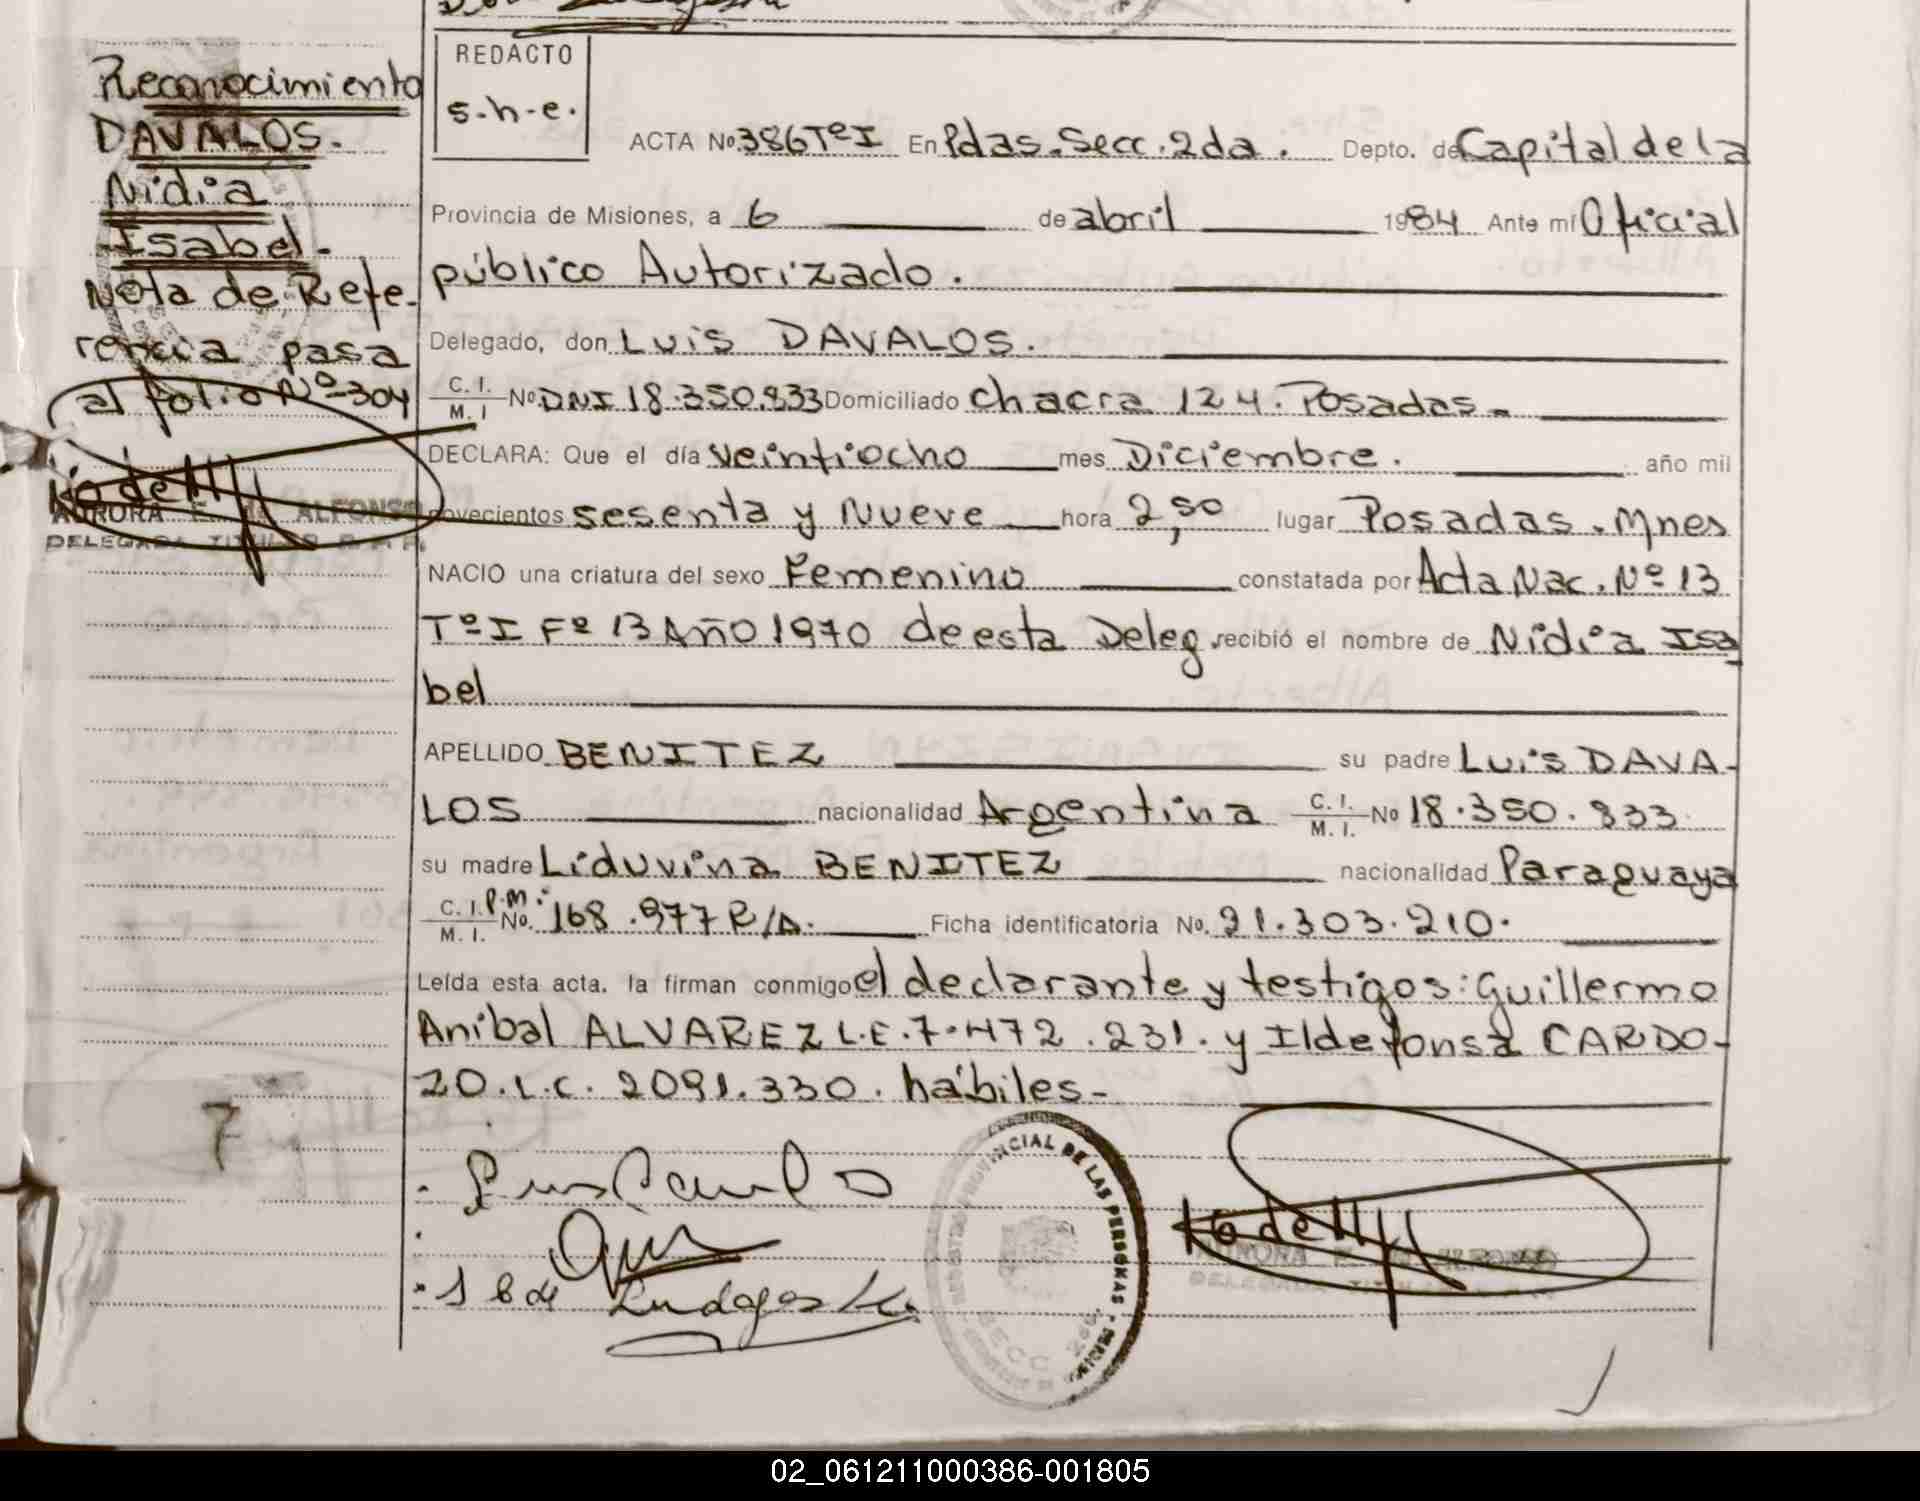 REDACTO
s-h-e.
Reconocimiento
DAVALOS.
Nidia
Isabel.
Nota de Refe-
rencia pasa
al folio Nº 304
AURORA E. de ALFONSO
DELEGADA TITULAR R.P.P.
7
ACTA No 386 Tº I En Pdas. Secc. 2da. Depto. de Capital de la
Provincia de Misiones, a 6 de abril 1984 Ante mí Oficial
público Autorizado.
Delegado, don Luis DAVALOS.
C. I. M. I No DNI 18.350.833 Domiciliado chacra 124. Posadas.
DECLARA: Que el día veintiocho mes Diciembre. año mil
novecientos sesenta y Nueve hora 2,50 lugar Posadas. Mnes
NACIO una criatura del sexo Femenino constatada por Acta Nac. Nº 13
Tº I Fº 13 Año 1970 de esta Deleg recibió el nombre de Nidia Isa
bel
APELLIDO BENITEZ su padre Luis DAVA-
LOS nacionalidad Argentina C. I. M. I. No 18.350.833
su madre Liduvina BENITEZ nacionalidad Paraguaya
C. I. M. I. P.M: No. 168.977 R/A. Ficha identificatoria No. 21.303.210.
Leída esta acta, la firman conmigo el declarante y testigos: Guillermo
Anibal ALVAREZ L.E. 7.472.231. y Ildefonsa CARDO-
ZO. L.C. 2091.330. hábiles-
PROVINCIAL DE LAS PERSONAS
SECC 2da.
02_061211000386-001805